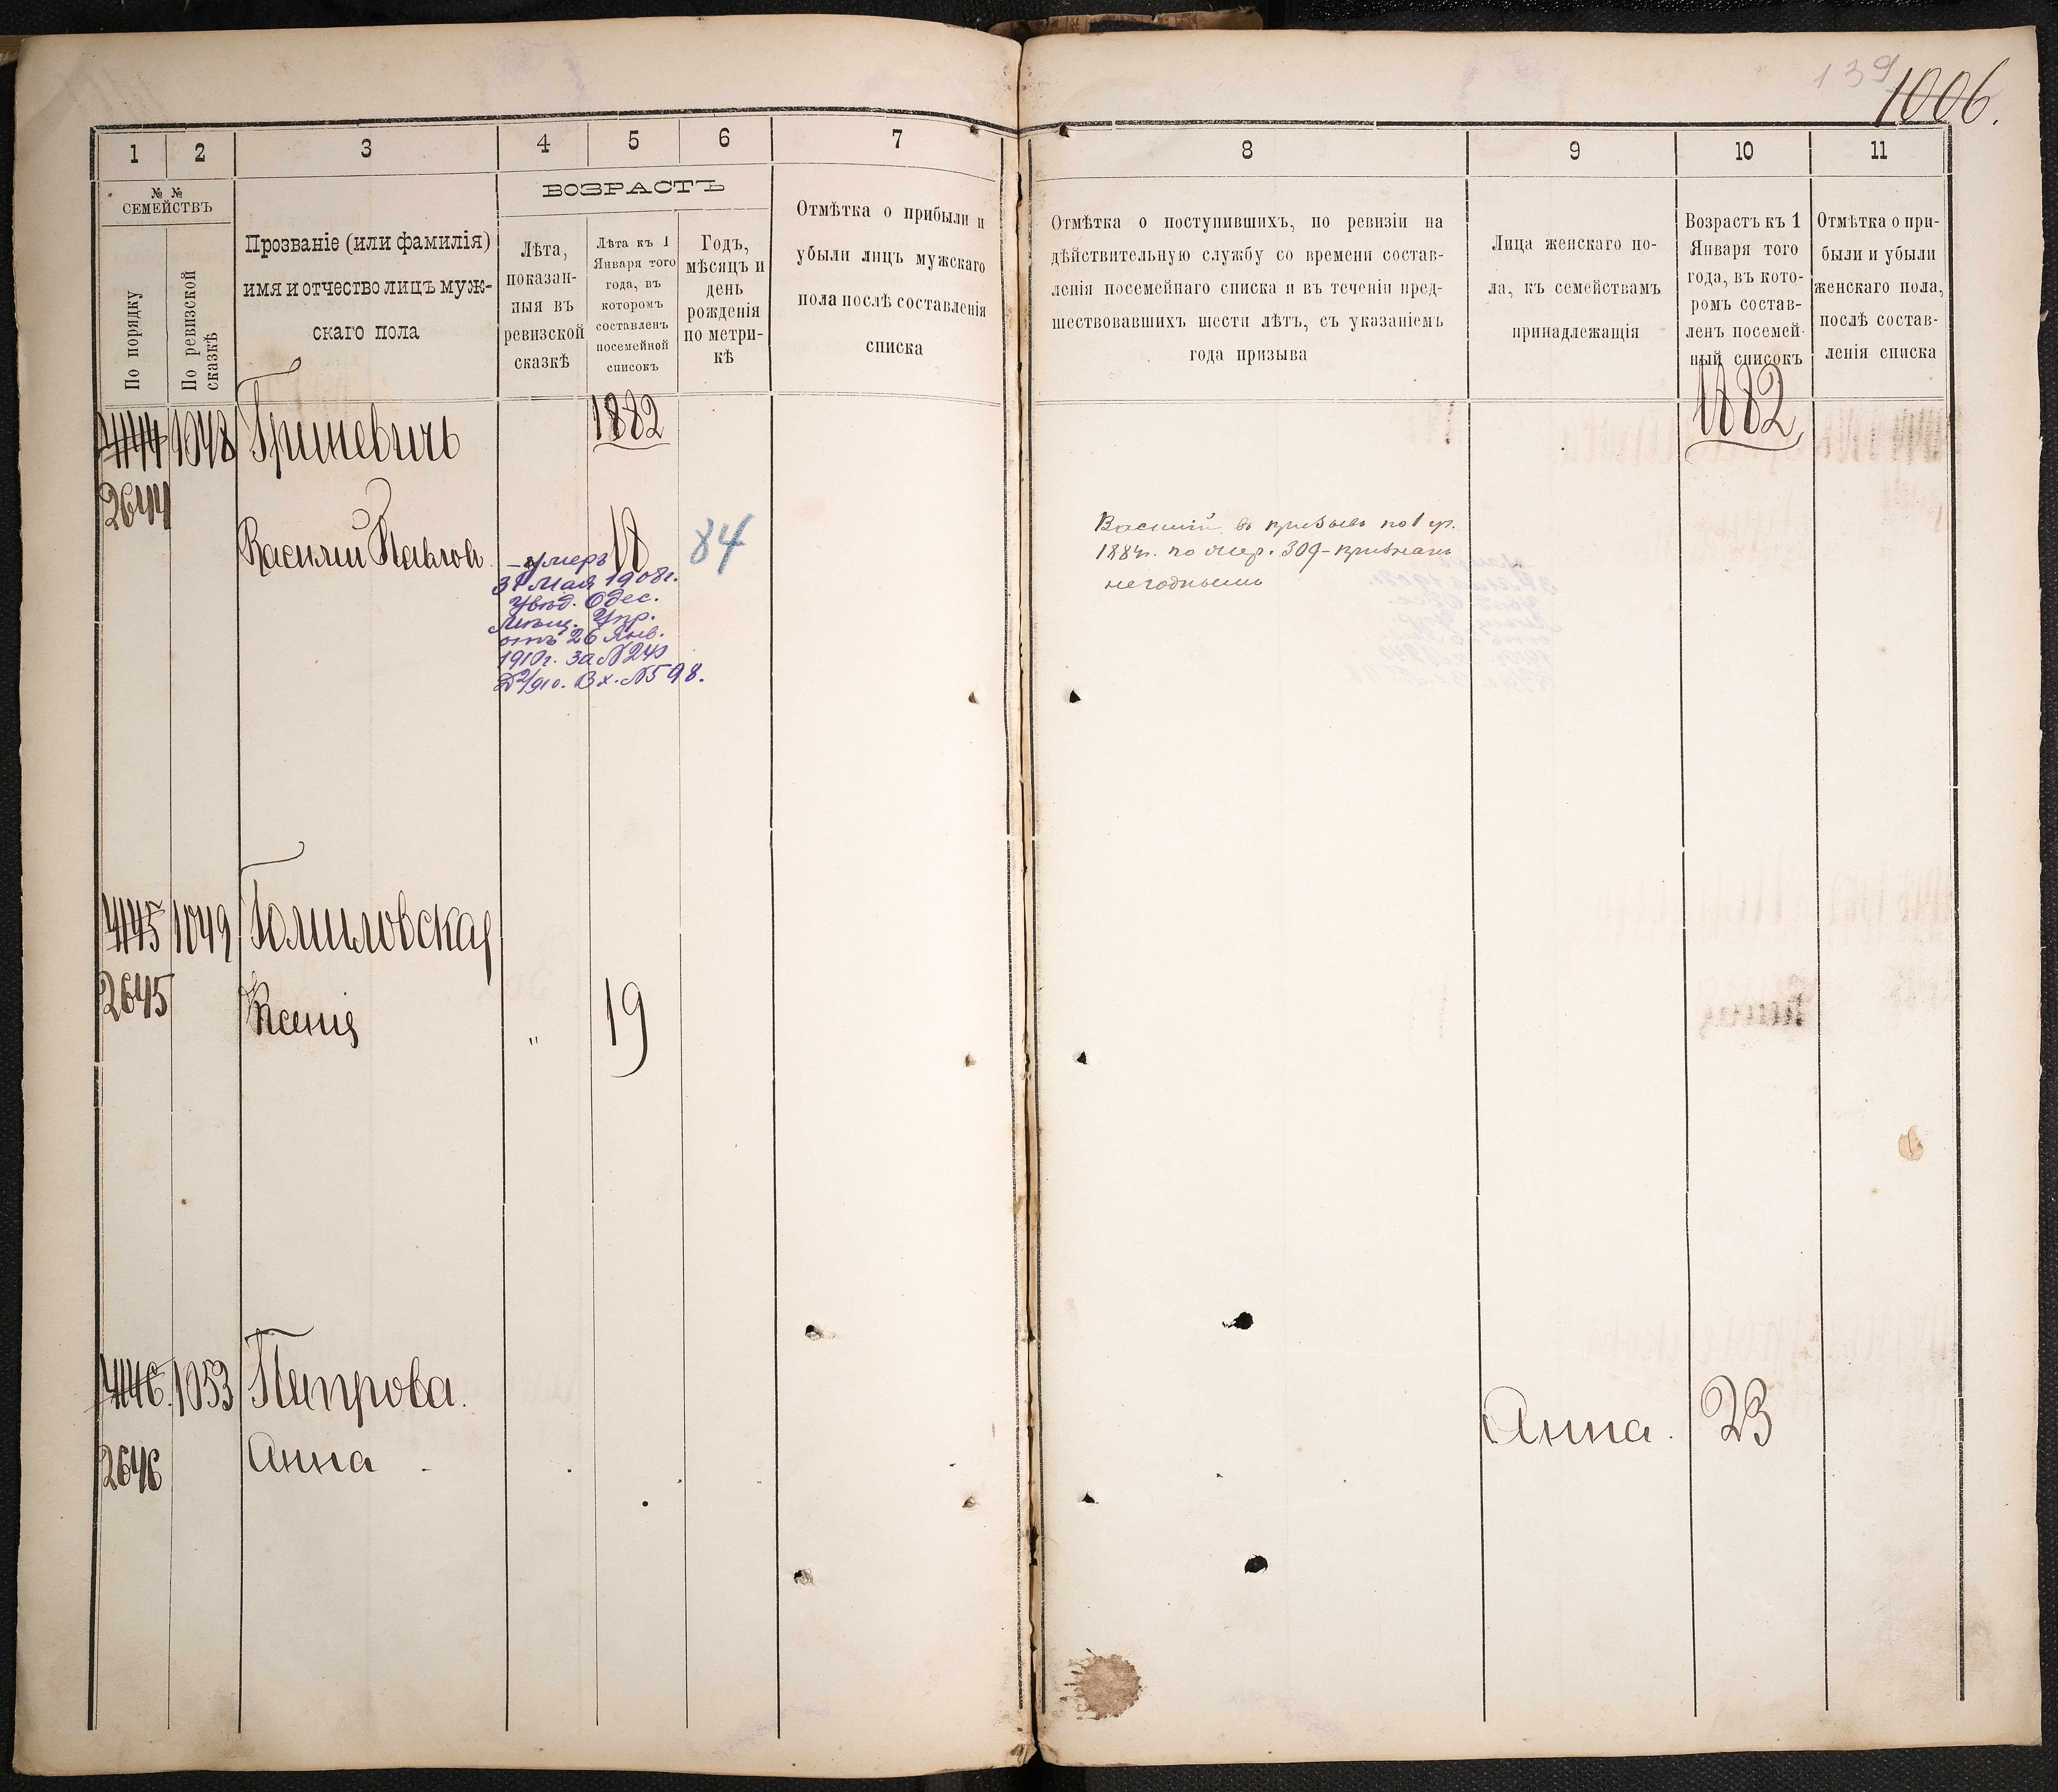 139
1006.
1
2
3
4
5
6
7
8
9
10
11
№ №
СЕМЕЙСТВЪ
По порядку
По ревизской
сказкѣ
Прозваніе (или фамилія)
имя и отчество лицъ муж-
скаго пола
ВОЗРАСТЪ
Лѣта,
показан-
ныя въ
ревизской
сказкѣ
Лѣта къ 1
Января того
года, въ
которомъ
составленъ
посемейной
списокъ
Годъ,
мѣсяцъ и
день
рожденія
по метри-
кѣ
Отмѣтка о прибыли и
убыли лицъ мужскаго
пола послѣ составленія
списка
Отмѣтка о поступившихъ, по ревизіи на
дѣйствительную службу со времени состав-
ленія посемейнаго списка и въ теченіи пред-
шествовавшихъ шести лѣтъ, съ указаніемъ
года призыва
Лица женскаго по-
ла, къ семействамъ
принадлежащія
Возрастъ къ 1
Января того
года, въ кото-
ромъ состав-
ленъ посемей-
ный списокъ
Отмѣтка о при-
были и убыли
женскаго пола,
послѣ состав-
ленія списка
4144 1048 Гриневичъ 1882 1882
2644
Василій Павлов. 18 84
умеръ
31 Мая 1908г.
Увѣд. Одес.
Мѣщ. Упр.
отъ 26 Янв.
1910г. за №
Вх. №598.
Василій въ призывъ
1884г. по жер. 309 - признанъ
негоднымъ
4145 1049
2645
Ксенія " 19
4146. 1053 Петрова.
2646 Анна
Анна. 23